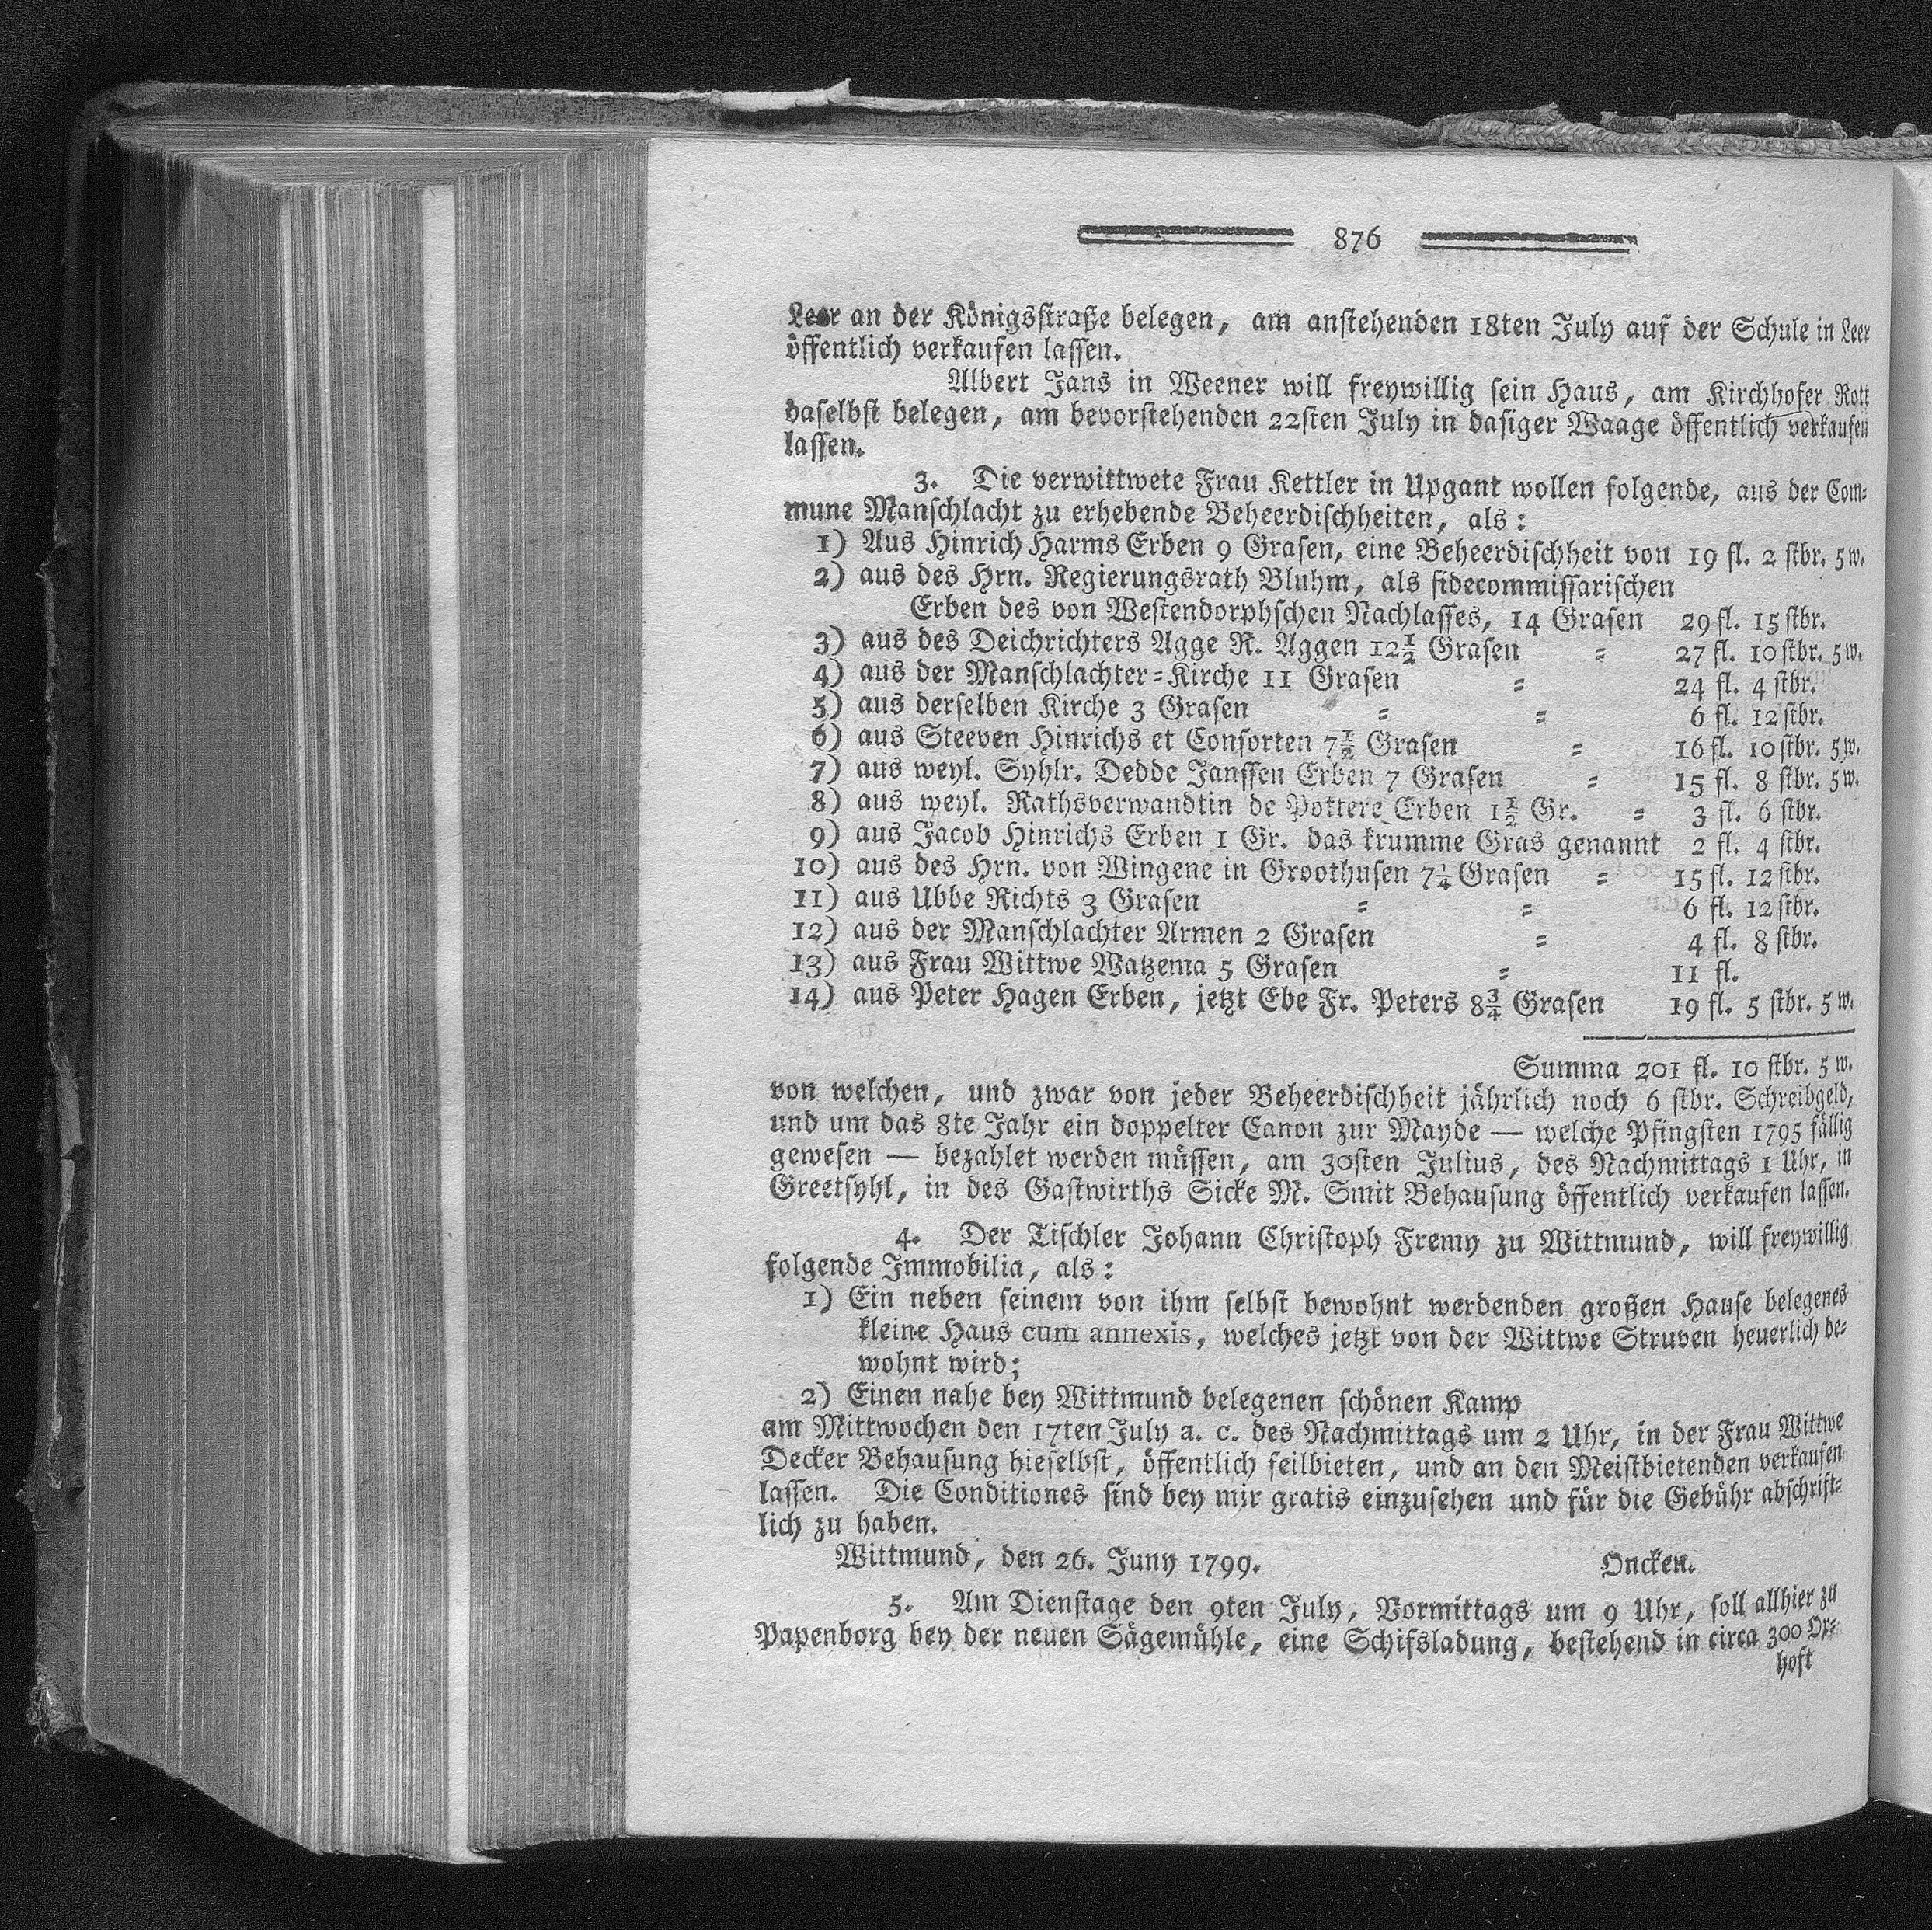 876
Leer an der Königsstraße belegen, am anstehenden 18ten July auf der Schule in Leer
öffentlich verkaufen lassen.
Albert Jans in Weener will freywillig sein Haus, am Kirchhofer Rott
daselbst belegen, am bevorstehenden 22sten July in dasiger Waage öffentlich verkaufen
lassen.
3. Die verwittwete Frau Kettler in Upgant wollen folgende, aus der Com-
mune Manschlacht zu erhebende Beheerdischheiten, als:
1) Aus Hinrich Harms Erben 9 Grasen, eine Beheerdischheit von 19 fl. 2 stbr. 5 w.
2) aus des Hrn. Regierungsrath Bluhm, als fidecommissarischen
Erben des von Westendorphschen Nachlasses, 14 Grasen 29 fl. 15 stbr.
3) aus des Deichrichters Agge R. Aggen 12½ Grasen = 27 fl. 10 stbr. 5 w.
4) aus der Manschlachter=Kirche 11 Grasen = 24 fl. 4 stbr.
5) aus derselben Kirche 3 Grasen = = 6 fl. 12 stbr.
6) aus Steeven Hinrichs et Consorten 7½ Grasen = 16 fl. 10 stbr. 5 w.
7) aus weyl. Syhlr. Dedde Janssen Erben 7 Grasen = 15 fl. 8 stbr. 5 w.
8) aus weyl. Rathsverwandtin de Pottere Erben 1½ Gr. = 3 fl. 6 stbr.
9) aus Jacob Hinrichs Erben 1 Gr. das krumme Gras genannt 2 fl. 4 stbr.
10) aus des Hrn. von Wingene in Groothusen 7¼ Grasen = 15 fl. 12 stbr.
11) aus Ubbe Richts 3 Grasen = = 6 fl. 12 stbr.
12) aus der Manschlachter Armen 2 Grasen = 4 fl. 8 stbr.
13) aus Frau Wittwe Watzema 5 Grasen = 11 fl.
14) aus Peter Hagen Erben, jetzt Ebe Fr. Peters 8¾ Grasen 19 fl. 5 stbr. 5 w.
Summa 201 fl. 10 stbr. 5 w.
von welchen, und zwar von jeder Beheerdischheit jährlich noch 6 stbr. Schreibgeld,
und um das 8te Jahr ein doppelter Canon zur Mayde — welche Pfingsten 1795 fällig
gewesen — bezahlet werden müssen, am 30sten Julius, des Nachmittags 1 Uhr, in
Greetsyhl, in des Gastwirths Sicke M. Smit Behausung öffentlich verkaufen lassen.
4. Der Tischler Johann Christoph Fremy zu Wittmund, will freywillig
folgende Immobilia, als:
1) Ein neben seinem von ihm selbst bewohnt werdenden großen Hause belegenes
kleine Haus cum annexis, welches jetzt von der Wittwe Struven heuerlich be-
wohnt wird;
2) Einen nahe bey Wittmund belegenen schönen Kamp
am Mittwochen den 17ten July a. c. des Nachmittags um 2 Uhr, in der Frau Wittwe
Decker Behausung hieselbst, öffentlich feilbieten, und an den Meistbietenden verkaufen
lassen. Die Conditiones sind bey mir gratis einzusehen und für die Gebühr abschrift-
lich zu haben.
Wittmund, den 26. Juny 1799. Oncken.
5. Am Dienstage den 9ten July, Vormittags um 9 Uhr, soll allhier zu
Papenborg bey der neuen Sägemühle, eine Schifsladung, bestehend in circa 300 Ox-
hoft